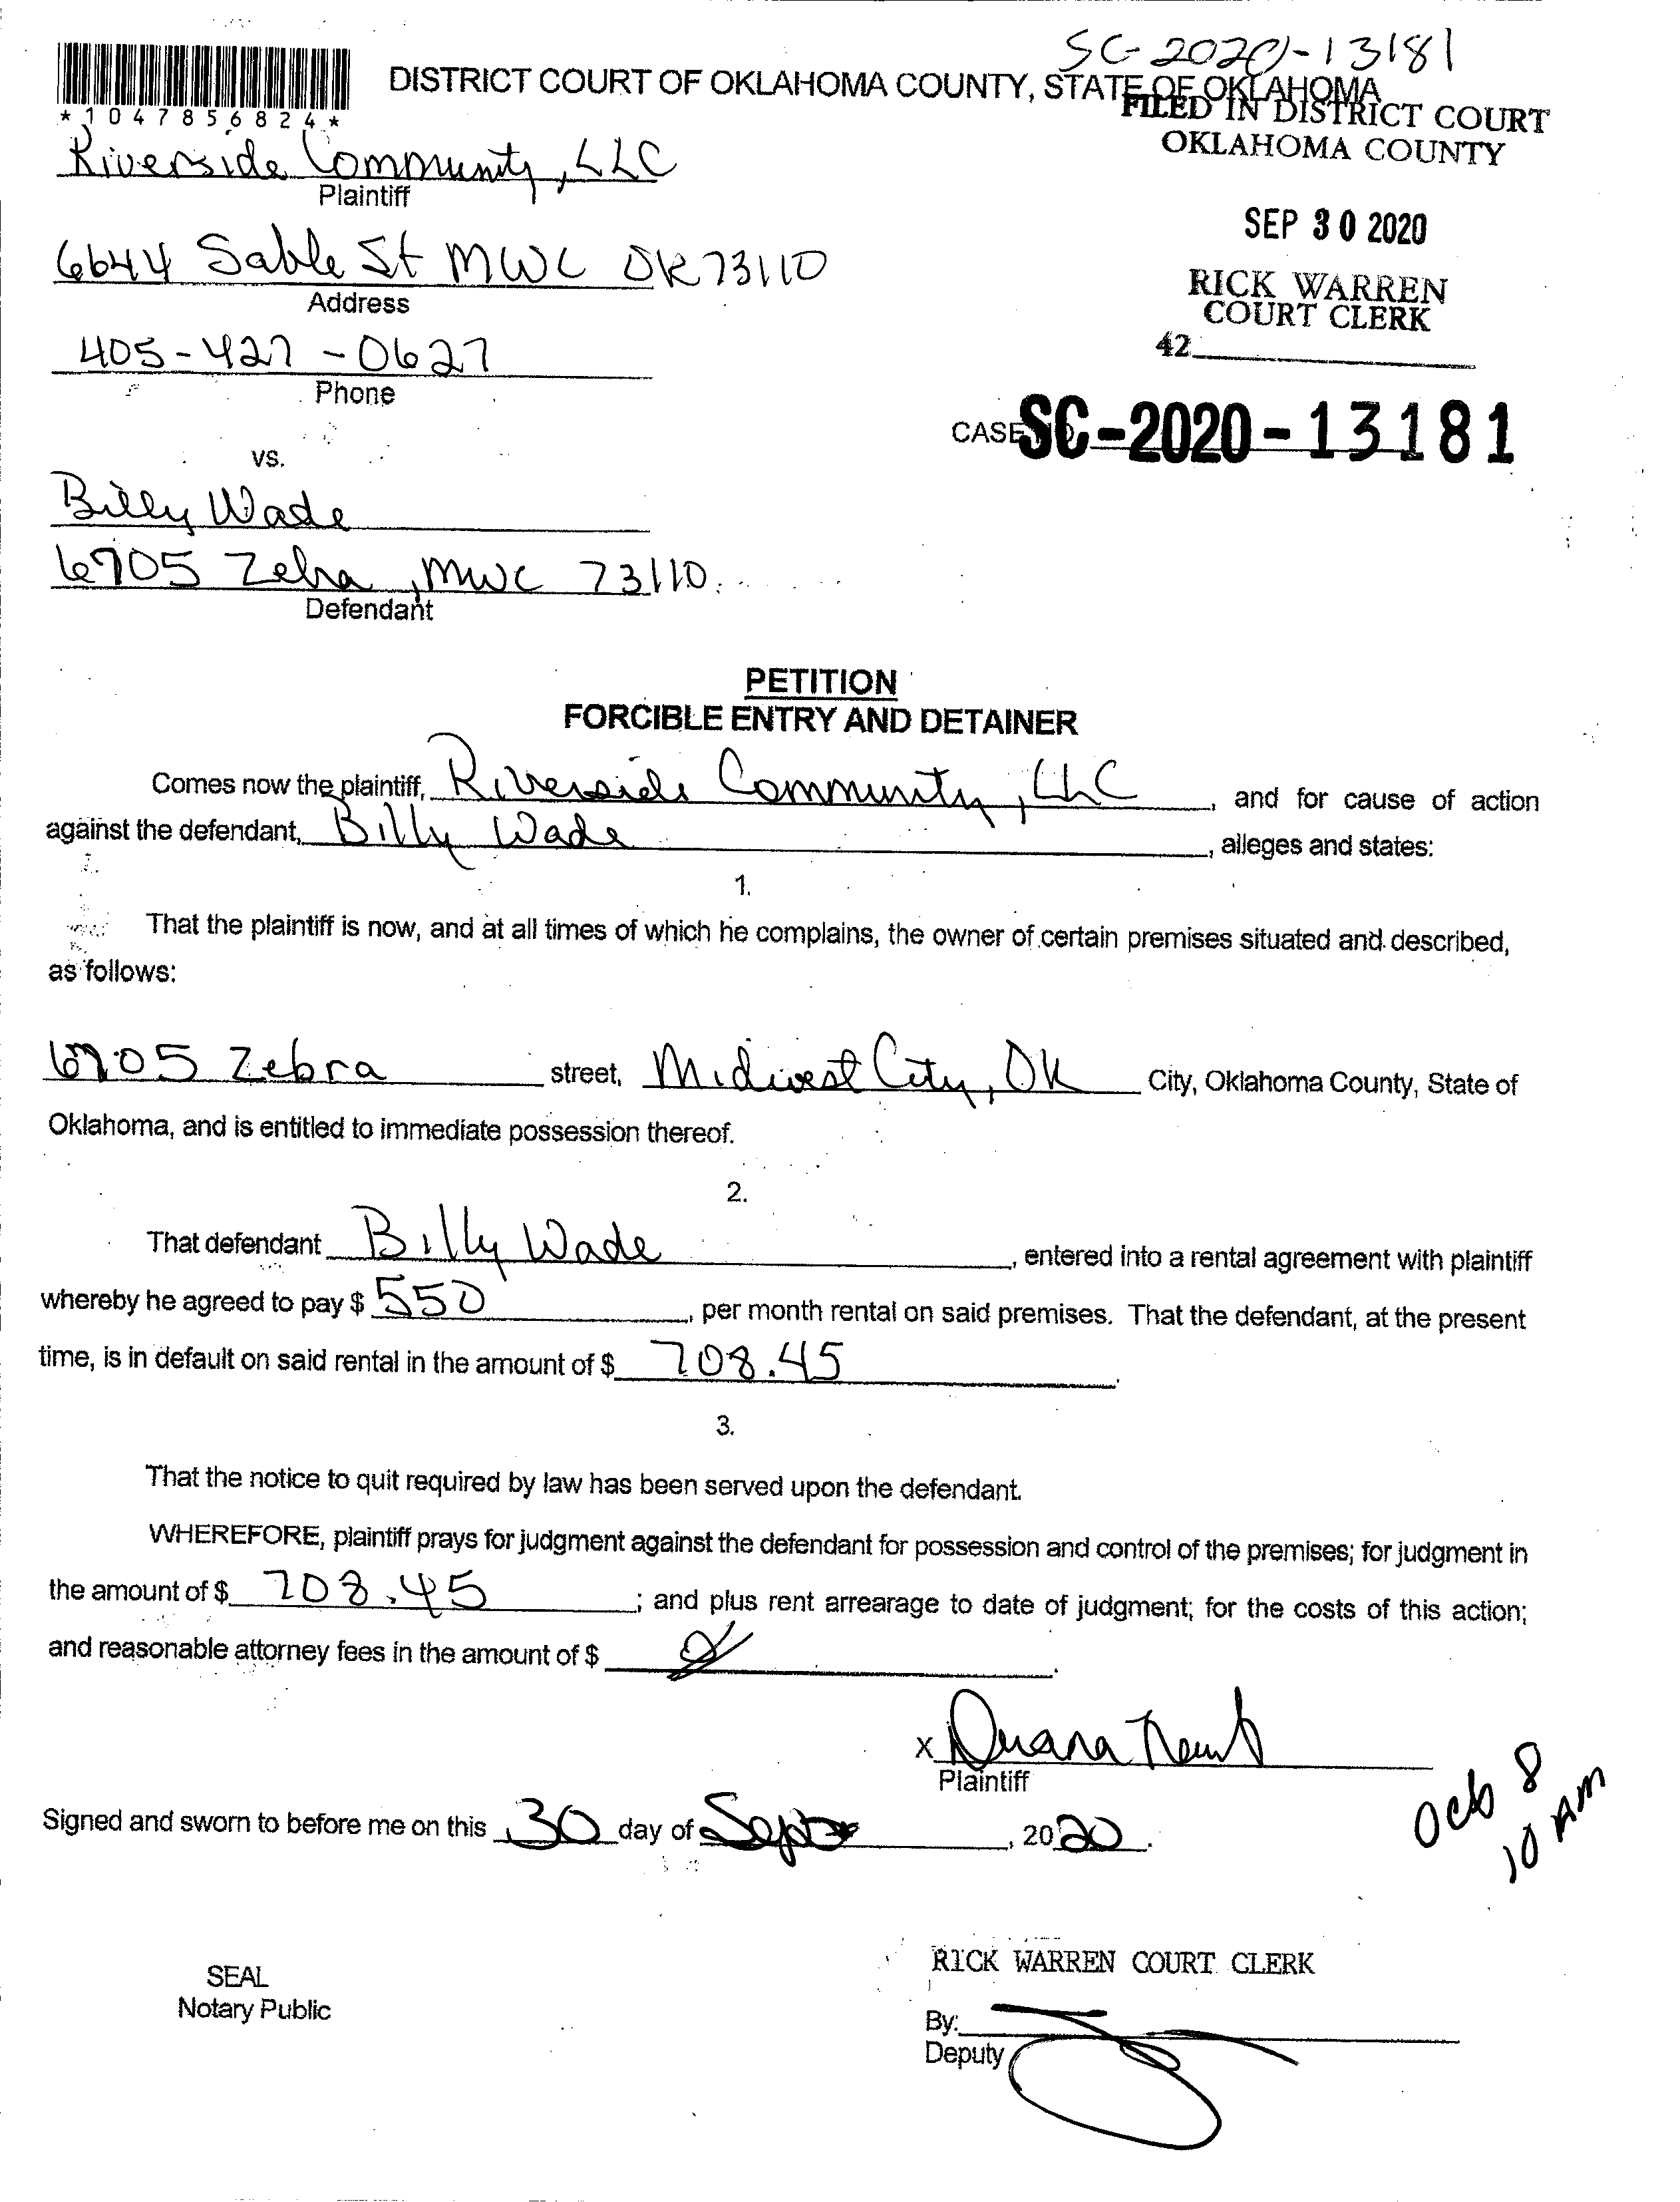 SC-2020-13181
DISTRICT COURT OF OKLAHOMA COUNTY, STATE OF OKLAHOMA
FILED IN DISTRICT COURT
OKLAHOMA COUNTY
*1047856824*
Riverside Community, LLC
Plaintiff
SEP 30 2020
6644 Sable St MWC OK 73110
Address
RICK WARREN
COURT CLERK
42
405-427-0627
Phone
CASE SC-2020-13181
vs.
Billy Wade
6705 Zebra, MWC 73110
Defendant
PETITION
FORCIBLE ENTRY AND DETAINER
Comes now the plaintiff, Riverside Community, LLC, and for cause of action
against the defendant, Billy Wade, alleges and states:
1.
That the plaintiff is now, and at all times of which he complains, the owner of certain premises situated and described,
as follows:
6705 Zebra street, Midwest City, OK City, Oklahoma County, State of
Oklahoma, and is entitled to immediate possession thereof.
2.
That defendant Billy Wade, entered into a rental agreement with plaintiff
whereby he agreed to pay $ 550, per month rental on said premises. That the defendant, at the present
time, is in default on said rental in the amount of $ 708.45.
3.
That the notice to quit required by law has been served upon the defendant.
WHEREFORE, plaintiff prays for judgment against the defendant for possession and control of the premises; for judgment in
the amount of $ 708.45; and plus rent arrearage to date of judgment; for the costs of this action;
and reasonable attorney fees in the amount of $
X
Plaintiff
Oct 8
10 AM
Signed and sworn to before me on this 30 day of Sept, 2020.
RICK WARREN COURT CLERK
SEAL
Notary Public
By:
Deputy